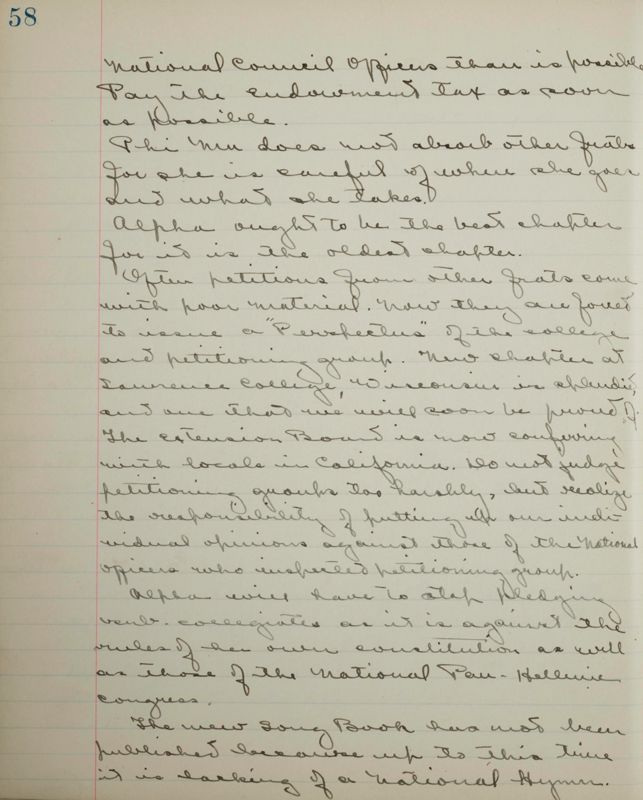 58
National Council Officers than is possible
Pay the endowment tax as soon
as possible.
Phi Mu does not absorb other frats
for she is careful of where she goes
and what she takes.
Alpha ought to be the best chapter
for it is the oldest chapter.
Often petitions from other frats come
with poor material. Now they are forced
to issue a "Perspectus" of the college
and petitioning group. New chapter at
Lawrence College, Wisconsin is splendid,
and one that we will soon be proud of.
The Extension Board is now conferring
with locals in California. Do not judge
petitioning groups too harshly, but realize
the responsibility of putting up our indi-
vidual opinions against those of the National
officers who inspected petitioning group.
Alpha will have to stop pledging
sub. collegiates as it is against the
rules of her own constitution as well
as those of the National Pan-Hellenic
Congress.
The new Song Book has not been
published because up to this time
it is lacking of a National Hymn.